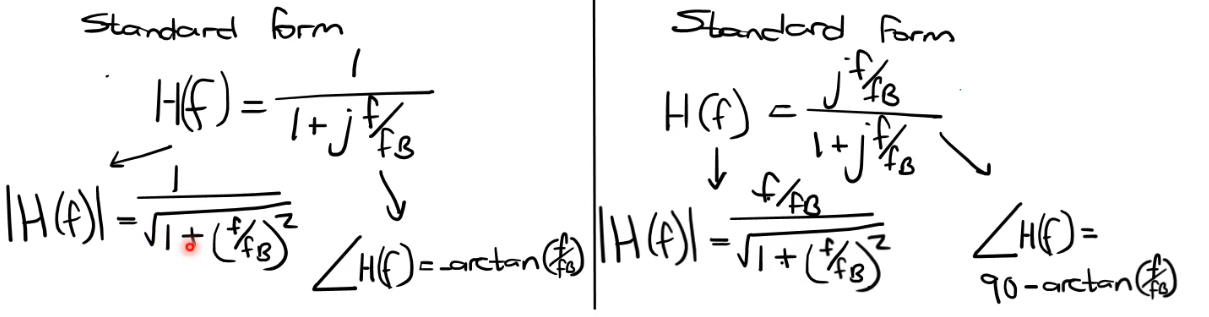 Standard form
H(f) = 1 / (1 + j f/fB)
|H(f)| = 1 / √(1 + (f/fB)²)
∠H(f) = -arctan(f/fB)
Standard Form
H(f) = (j f/fB) / (1 + j f/fB)
|H(f)| = (f/fB) / √(1 + (f/fB)²)
∠H(f) =
90 - arctan(f/fB)